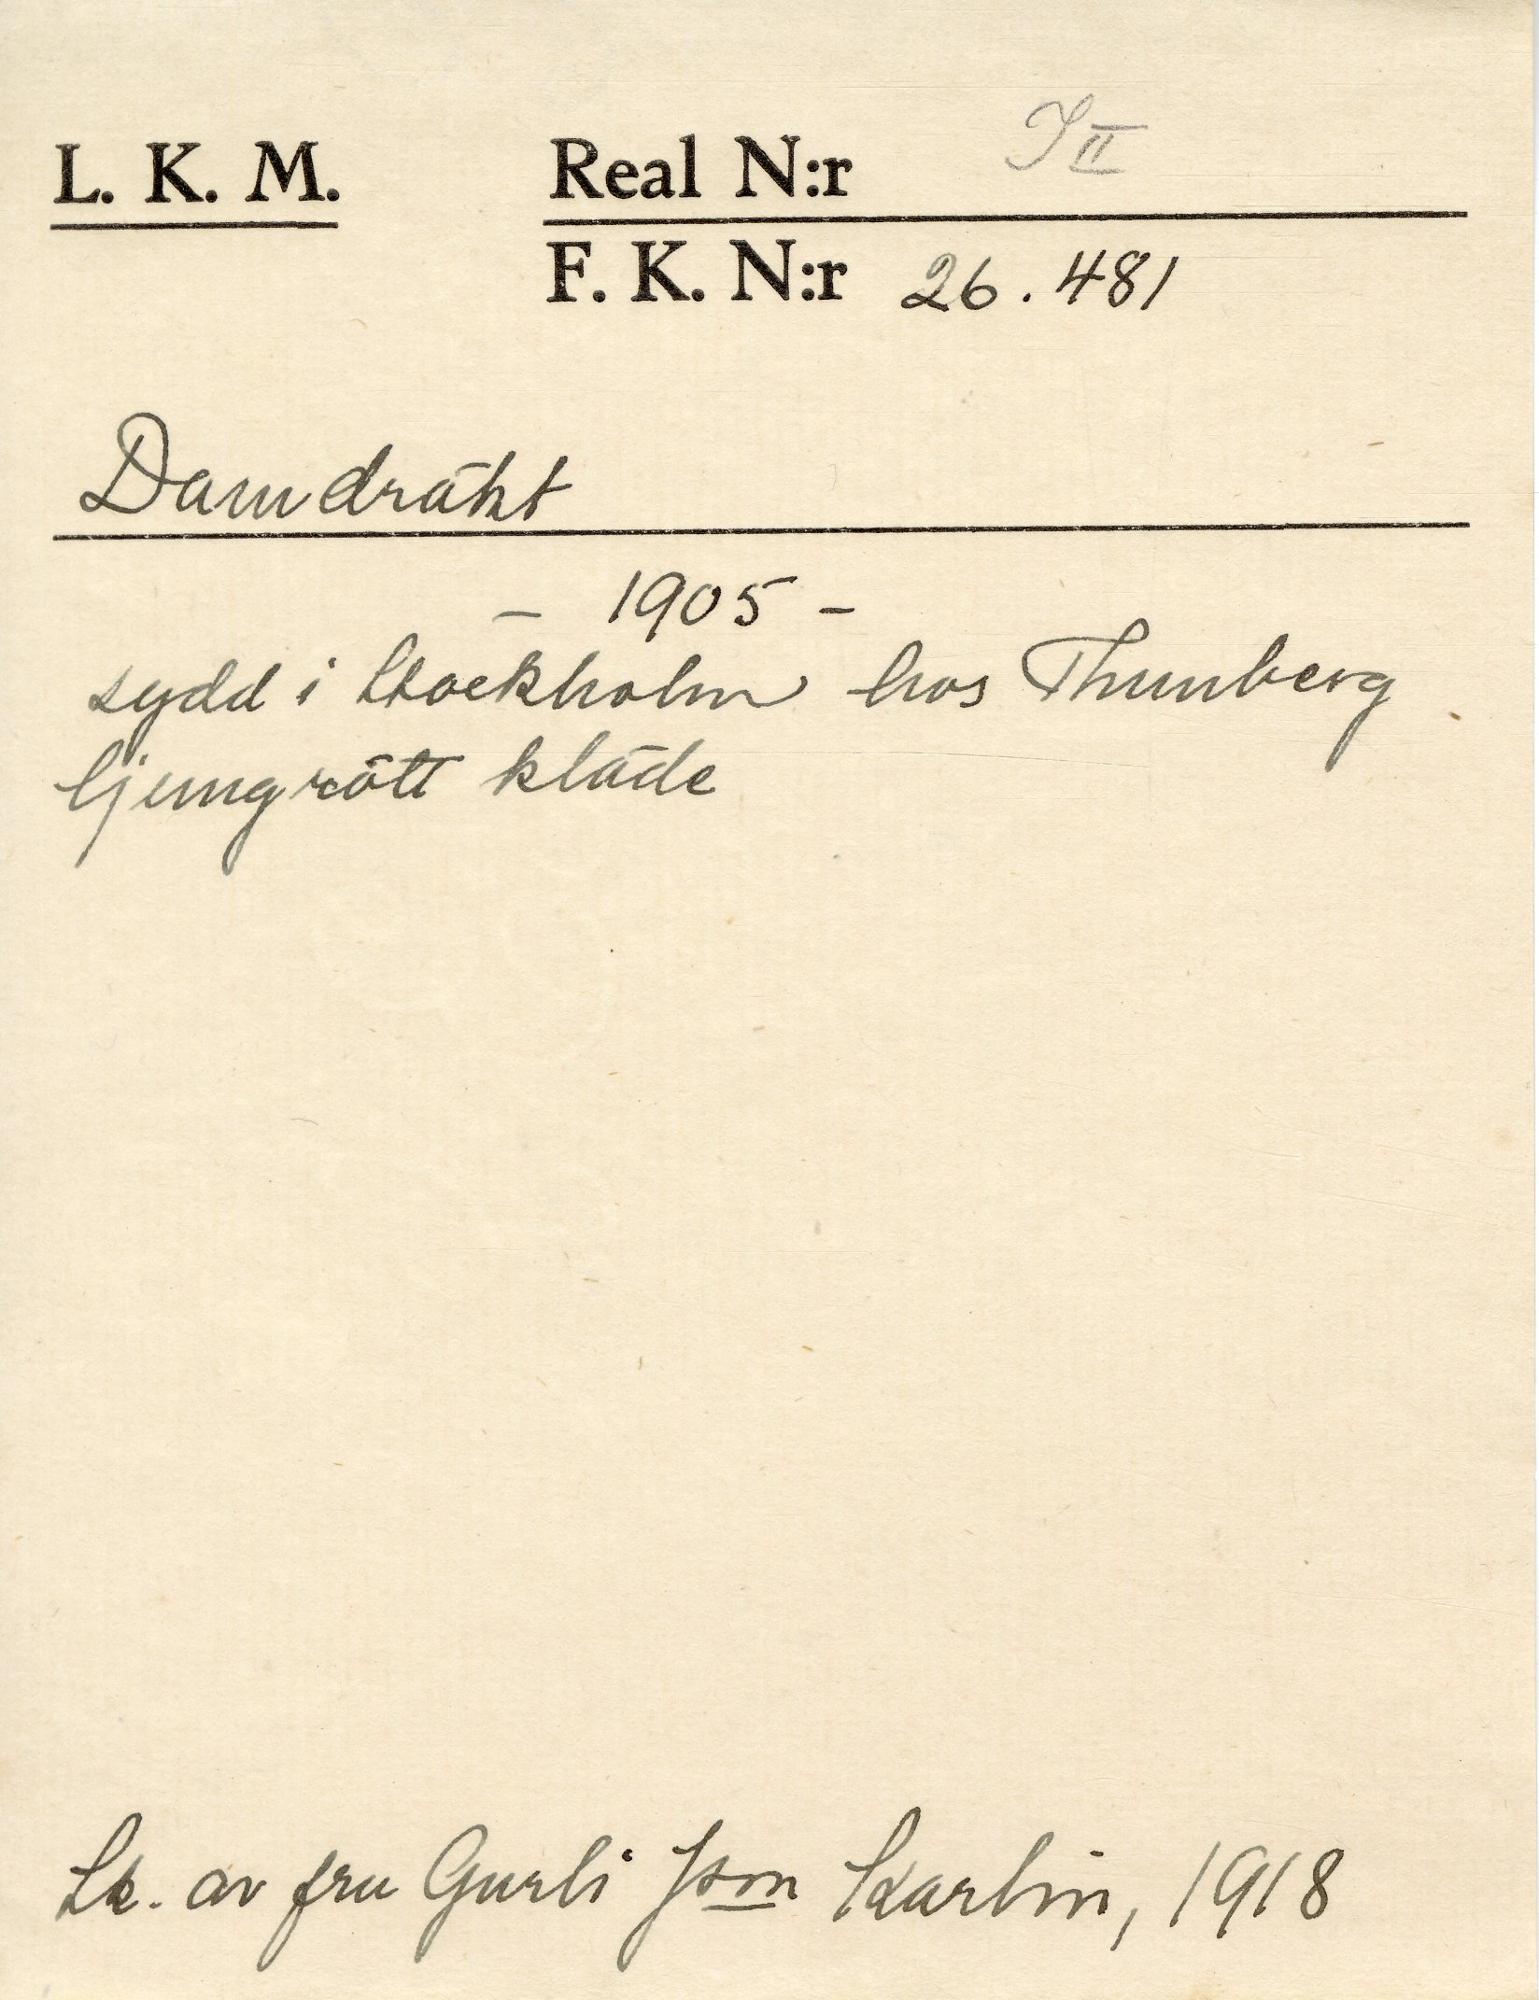 L. K. M.
Real N:r I II
F. K. N:r 26.481
Damdräkt
- 1905 -
sydd i Stockholm hos Thunberg
ljungrött kläde
Sk. av fru Gurli Json Karlin, 1918